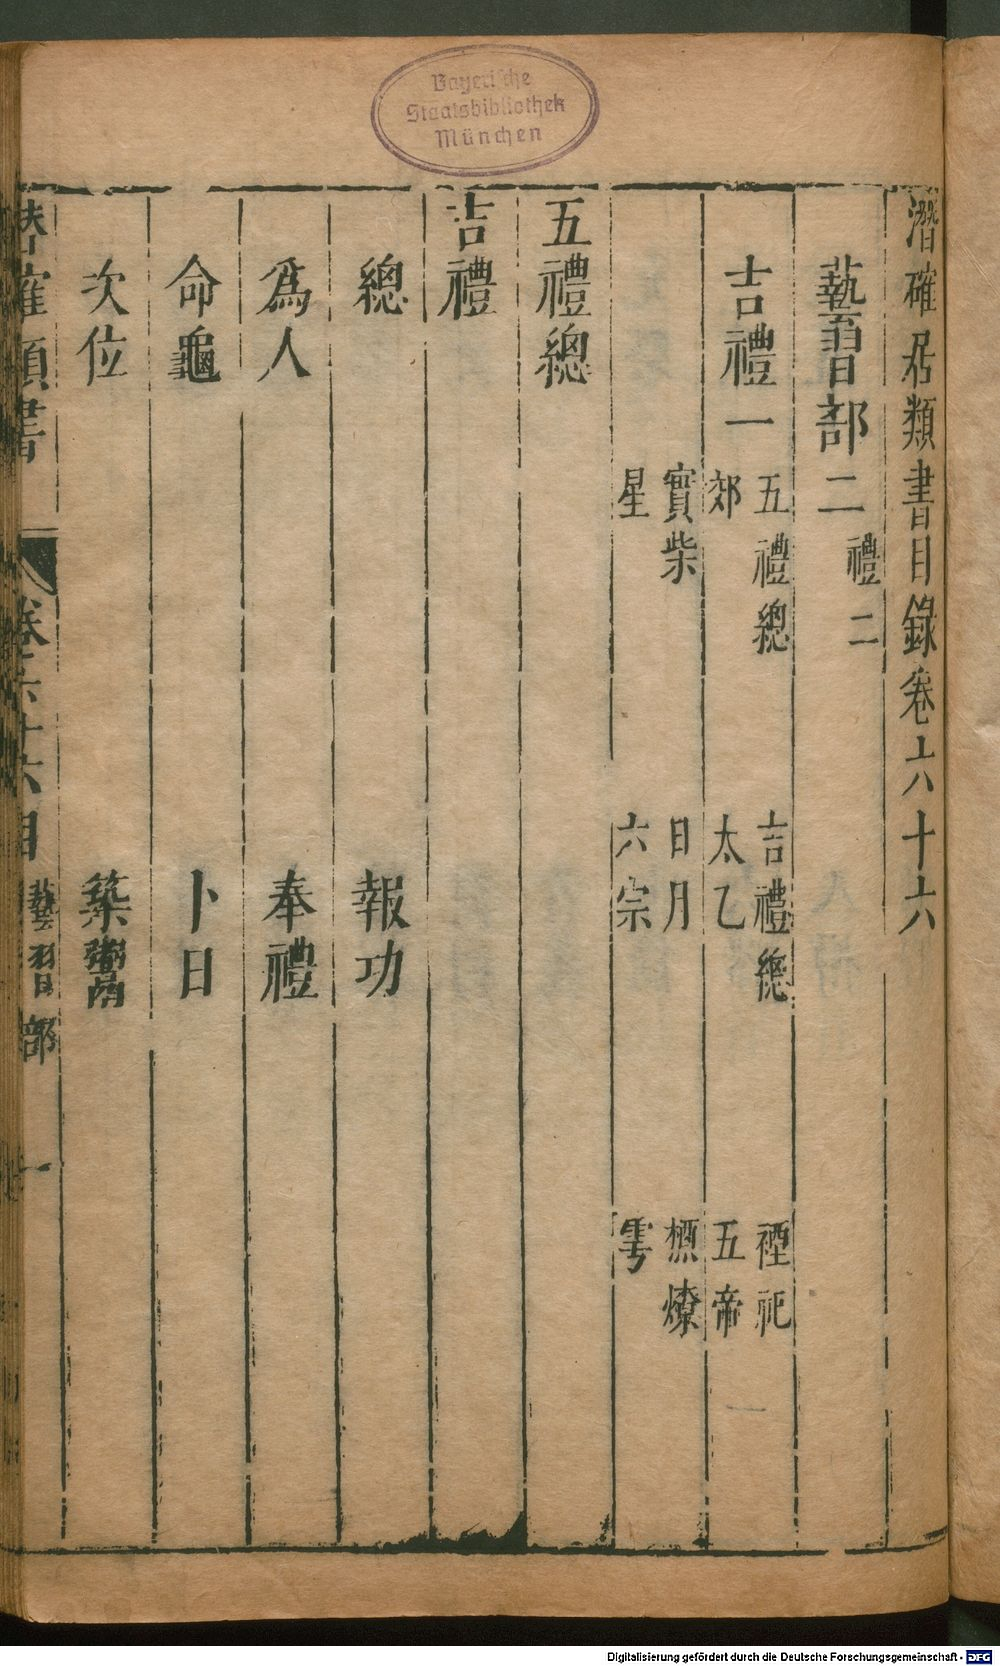 Bayerische
Staatsbibliothek
München
潛確居類書目錄卷六十六
藝習部二 禮二
吉禮一 五禮總 吉禮總 禋祀
郊 太乙 五帝
實柴 日月 槱燎
星 六宗 雩
五禮總
吉禮
總 報功
為人 奉禮
命龜 卜日
次位 築鬻
確類書 卷六十六目 藝習部 一
Digitalisierung gefördert durch die Deutsche Forschungsgemeinschaft - DFG